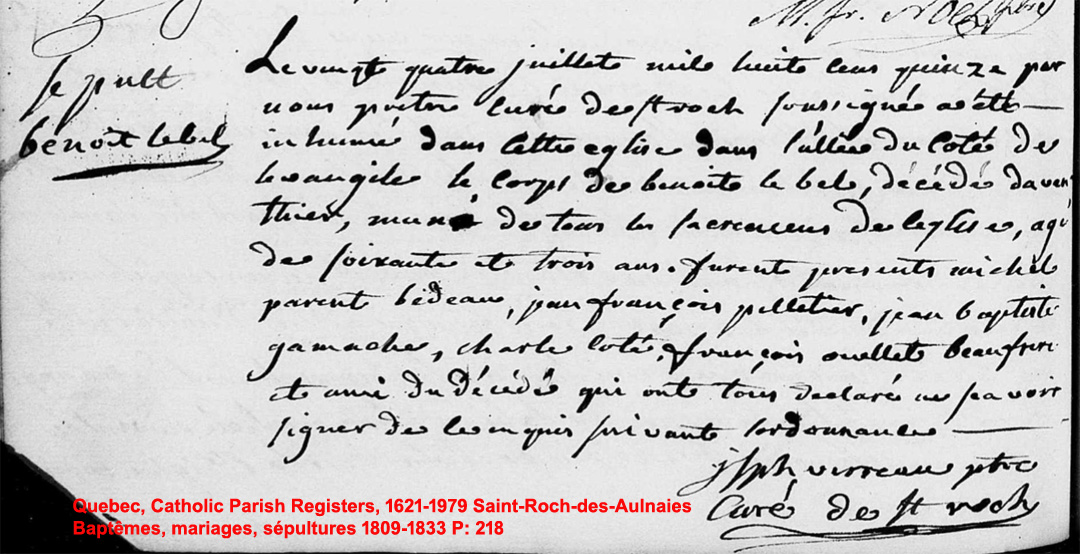 M. fr. Noel ptre
Sepult
benoit lebel
Le vingt quatre juillet mil huit cens quinze par
nous pretre curé de st roch soussignée a été
inhumé dans cette eglise dans l'allée du coté de
levangile le corps de benoit le bel, décédé davan
thier, muné de tous les sacremens de leglise, agé
de soixante et trois ans. furent presents michel
parent bédeau, jean françois pelletier, jean baptiste
gamache, charle coté, françois ouellet beaufrere
et ami du décédé qui ont tous declaré ne scavoir
signer de ce enquis suivant lordonnance
jsph verreau ptre
Curé de st roch
Quebec, Catholic Parish Registers, 1621-1979 Saint-Roch-des-Aulnaies
Baptèmes, mariages, sépultures 1809-1833 P: 218